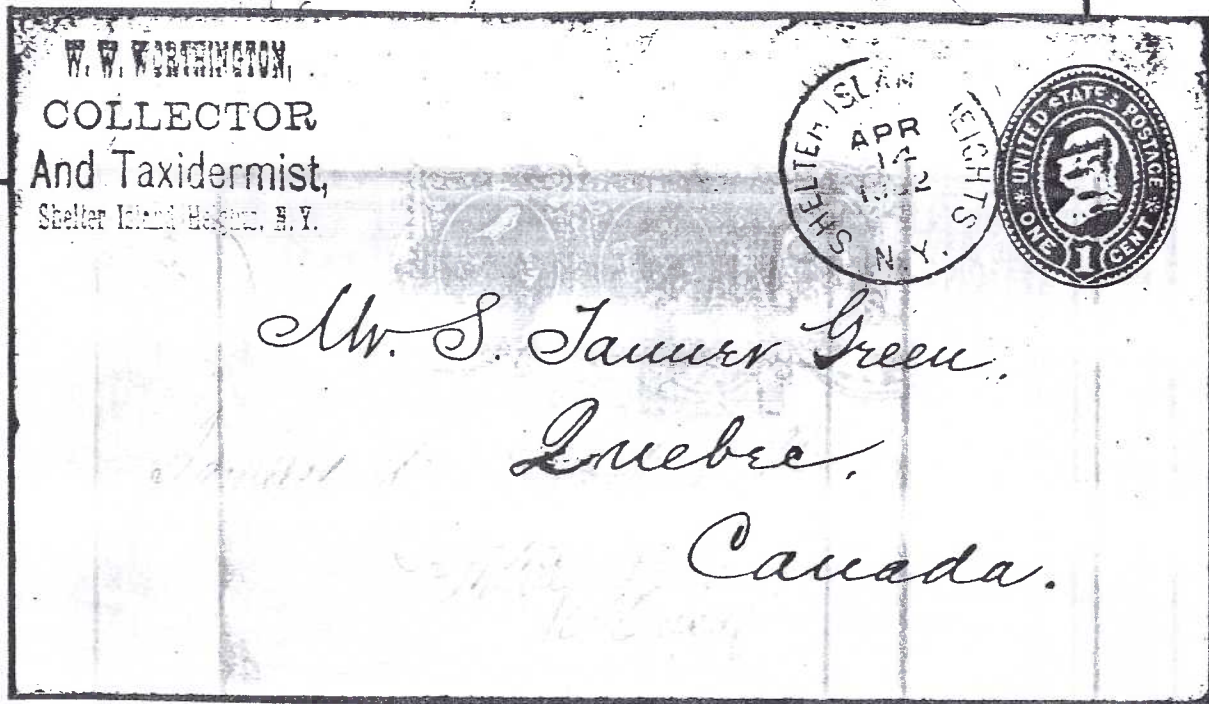 W. W. WORTHINGTON,
COLLECTOR
And Taxidermist,
Shelter Island Heights, N. Y.
SHELTER ISLAND HEIGHTS
APR
N.Y.
UNITED STATES POSTAGE
ONE 1 CENT
Mr. S. Tanner Green.
Quebec.
Canada.